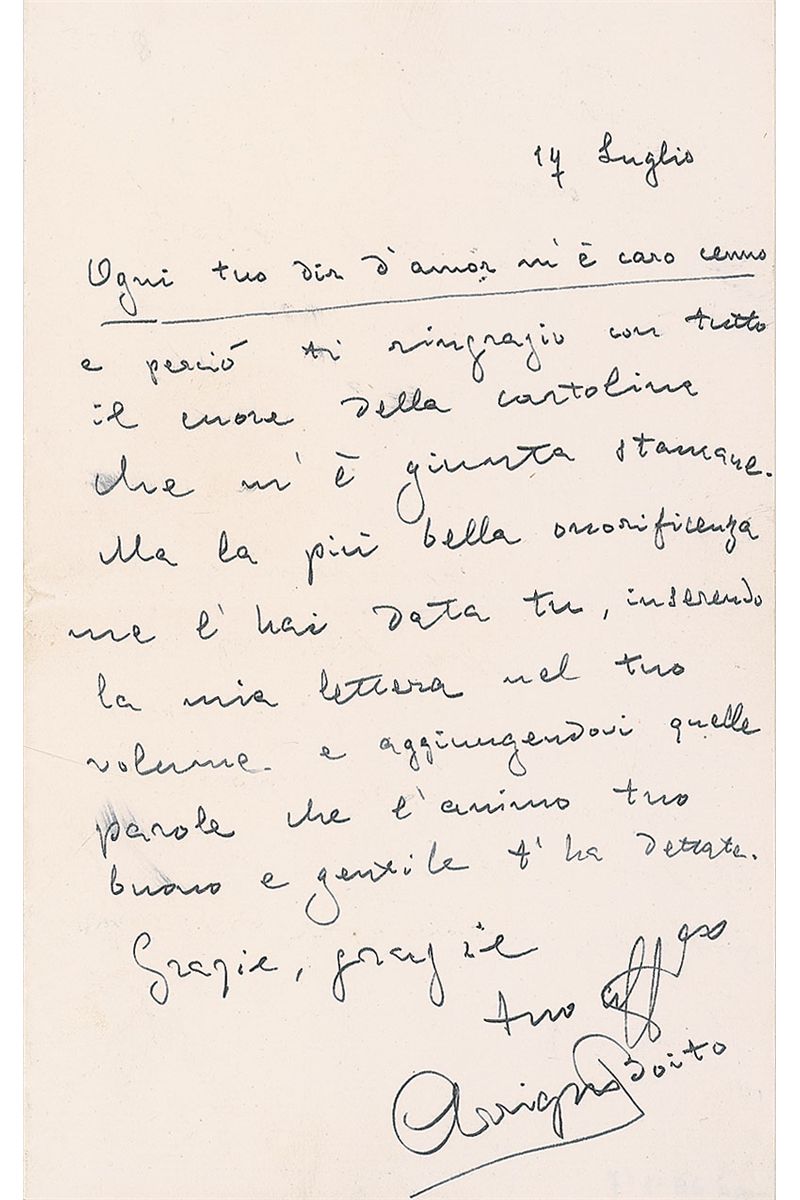 17 Luglio
Ogni tuo dir d'amor m'è caro cenno
e perciò ti ringrazio con tutto
il cuore della cartolina
che m'è giunta stamane.
Ma la più bella onorificenza
me l'hai data tu, inserendo
la mia lettera nel tuo
volume e aggiungendovi quelle
parole che l'animo tuo
buono e gentile t'ha dettate.
Grazie, grazie
tuo affeso
Arrigo Boito